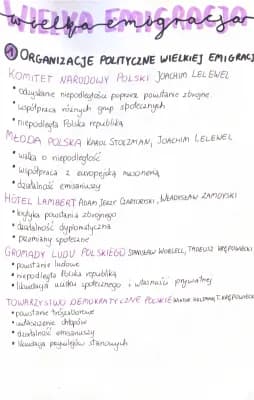 WIELKA EMIGRACJA
wielka emigracja
1 ORGANIZACJE POLITYCZNE WIELKIEJ EMIGRACJ
KOMITET NARODOWY POLSKI JOACHIM LELEWEL
• odzyskanie niepodległości poprzez powstanie zbrojne
• współpraca różnych grup społecznych
• niepodległa Polska republiką
MŁODA POLSKA KAROL STOLZMAN, JOACHIM LELEWEL
• walka o niepodległość
• współpraca z europejską masonerią
• działalność emisariuszy
HÔTEL LAMBERT ADAM JERZY CZARTORYSKI, WŁADYSŁAW ZAMOYSKI
• krytyka powstania zbrojnego
• działalność dyplomatyczna
• przemiany społeczne
GROMADY LUDU POLSKIEGO STANISŁAW WORCELL, TADEUSZ KRĘPOWIECKI
• powstanie ludowe
• niepodległa Polska republiką
• likwidacja ucisku społecznego i własności prywatnej
TOWARZYSTWO DEMOKRATYCZNE POLSKIE T. KRĘPOWIECK
• powstanie trójzaborowe
• uwłaszczenie chłopów
• działalność emisariuszy
• likwidacja przywilejów stanowych